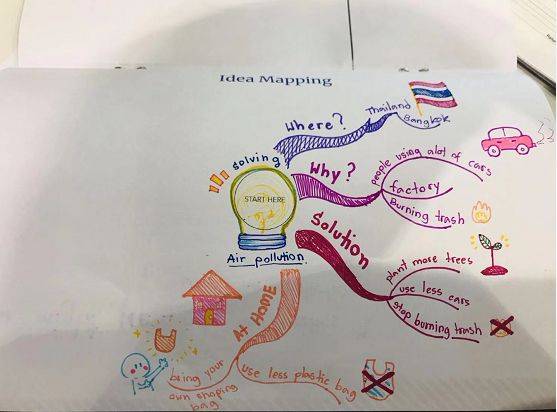 Idea Mapping
Where?
Thailand
Bangkok
solving
START HERE
Air pollution
Why?
people using alot of cars
factory
Burning trash
Solution
plant more trees
use less cars
stop burning trash
At HOME
bring your
own shoping
bag
use less plastic bag